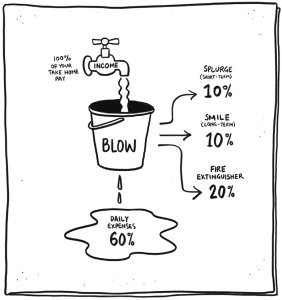 100%
OF YOUR
TAKE HOME
PAY
INCOME
BLOW
SPLURGE
(SHORT-TERM)
10%
SMILE
(LONG-TERM)
10%
FIRE
EXTINGUISHER
20%
DAILY
EXPENSES
60%